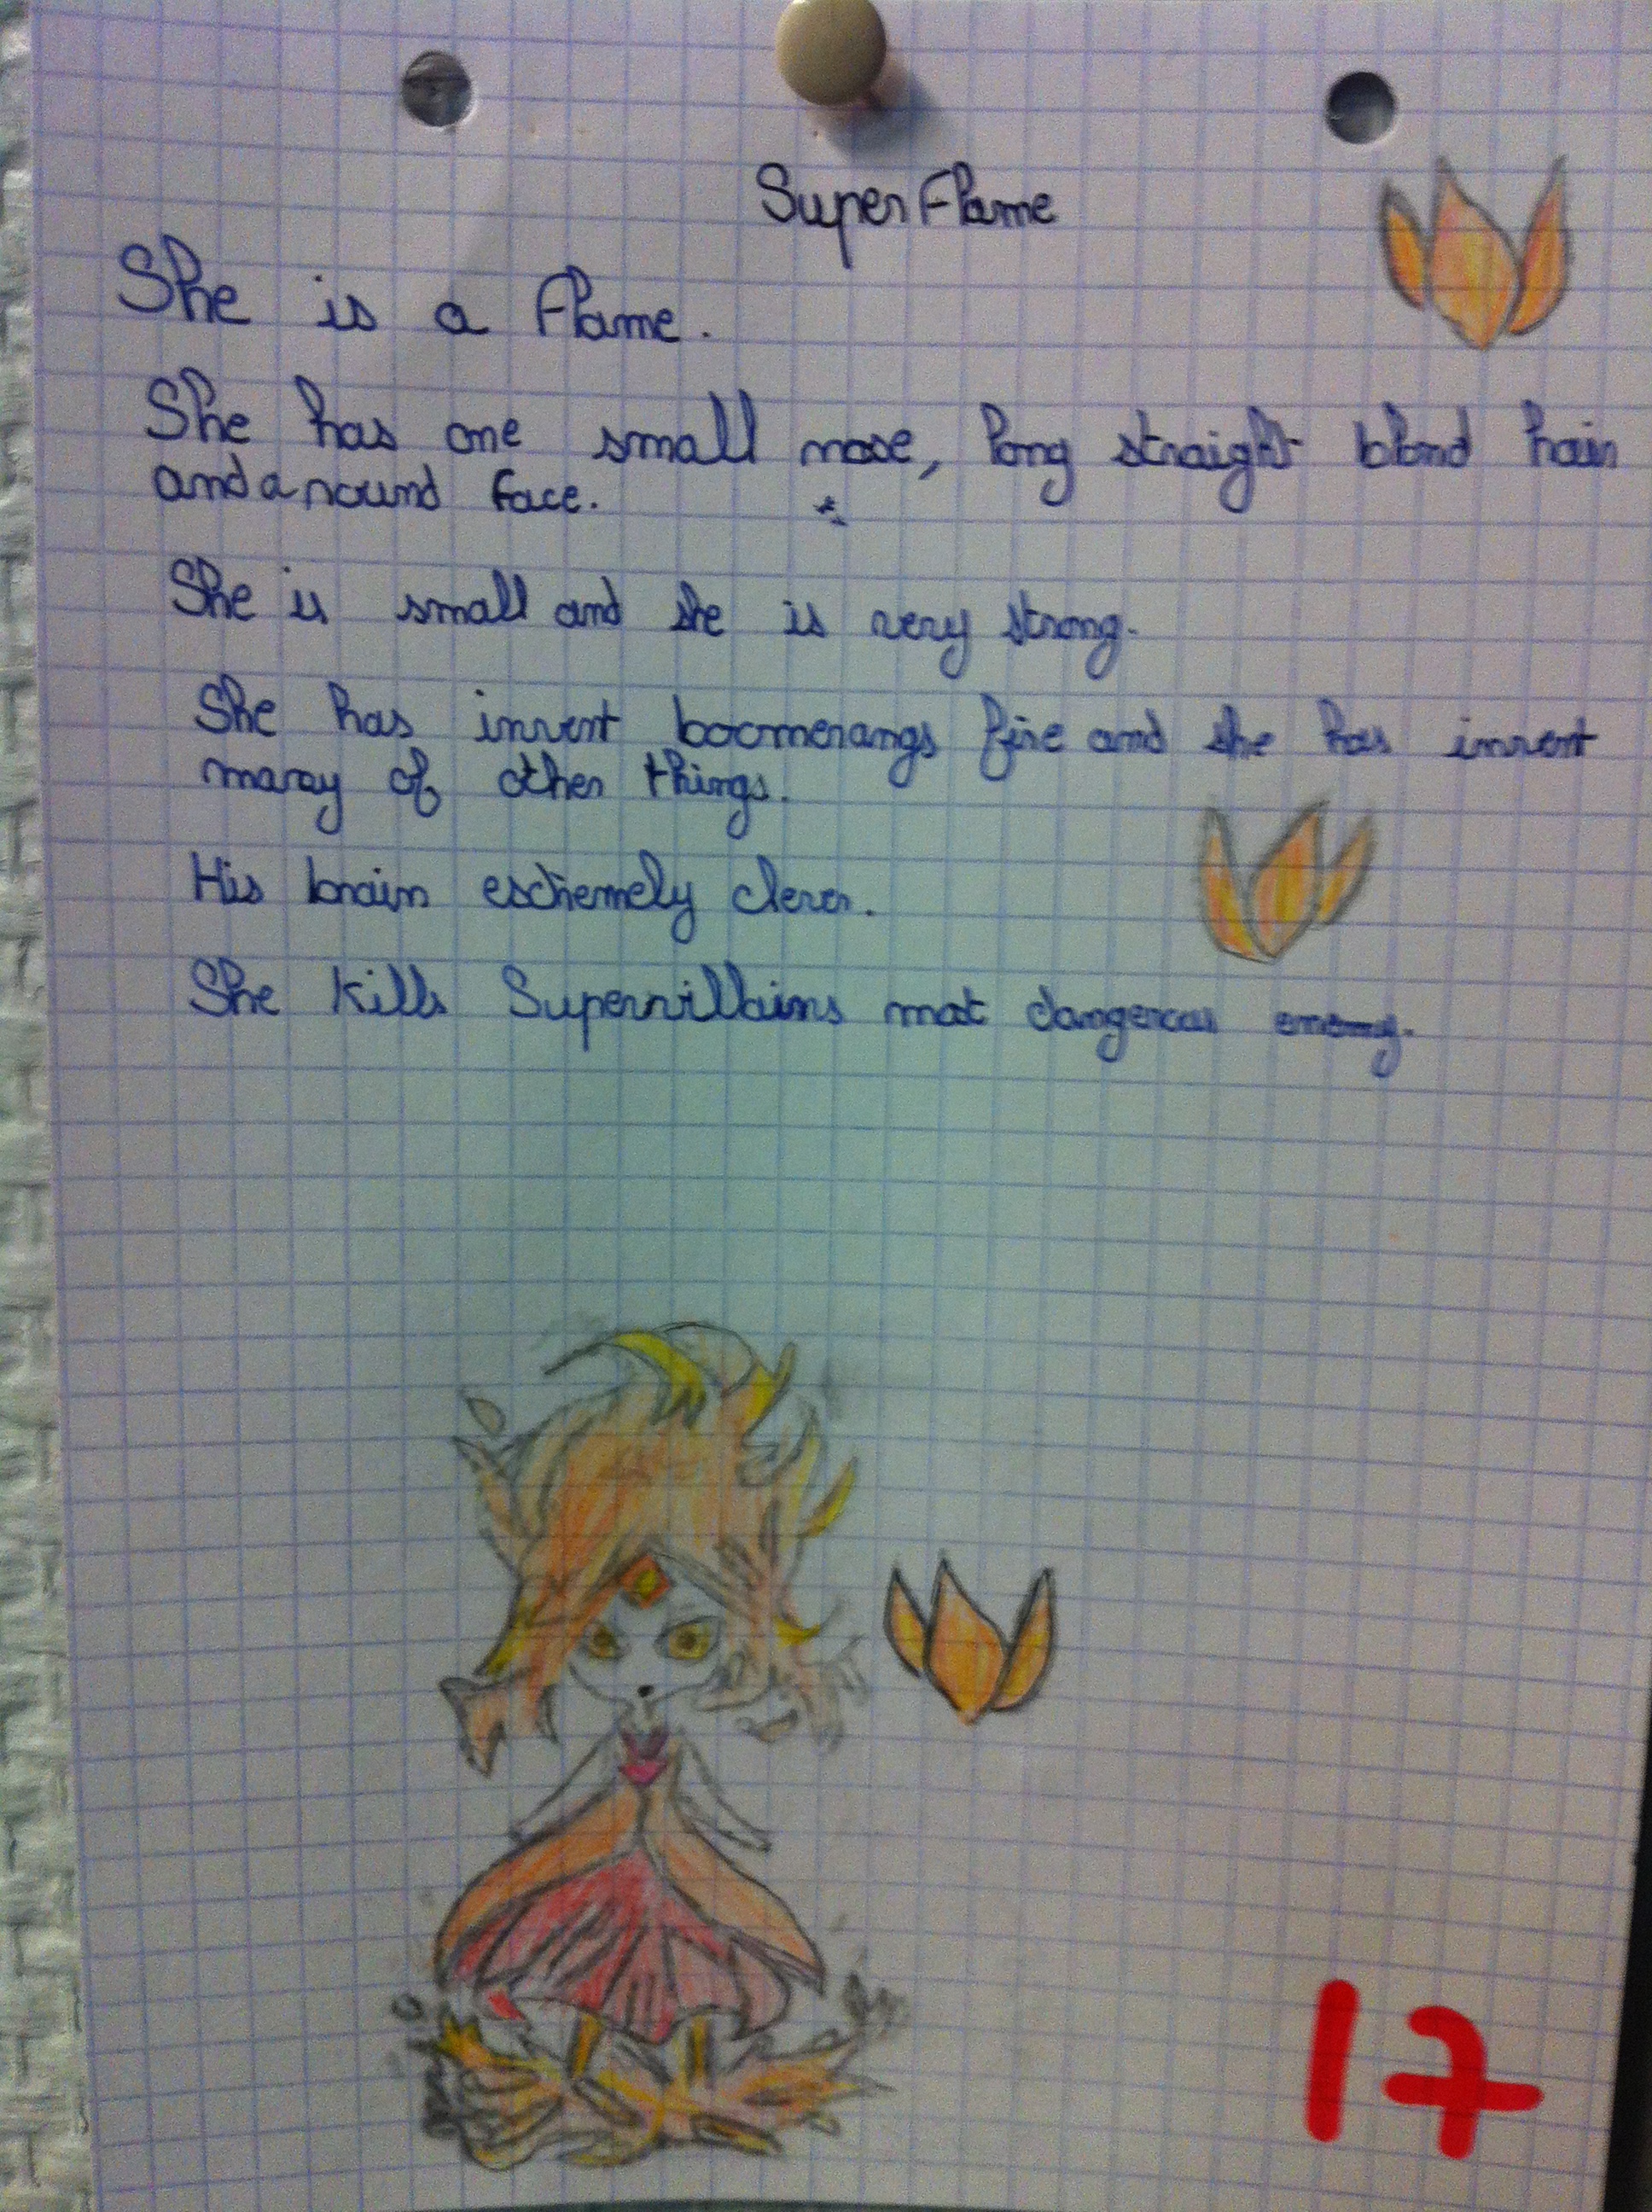 Super Flame
She is a flame.
She has one small nose, long straight blond hair
and a round face.
She is small and she is very strong.
She has invent boomerangs fire and she has invent
many of other things.
His brain esctremely clever.
She kills Supervillains most dangerous enemy.
17